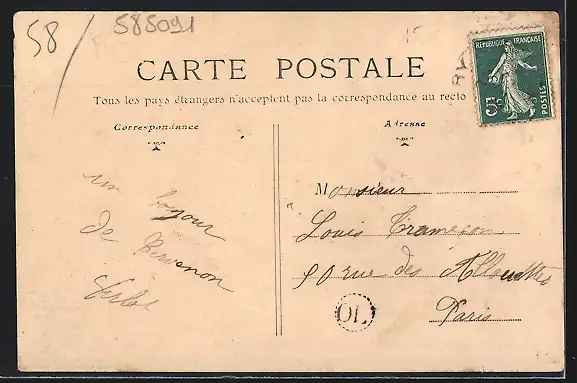 58
585091
CARTE POSTALE
RÉPUBLIQUE FRANÇAISE
5c
POSTES
Tous les pays étrangers n'acceptent pas la correspondance au recto
Correspondance
Adresse
un bojour
de
Monsieur
Louis
rue des Allouettes
Paris
OL